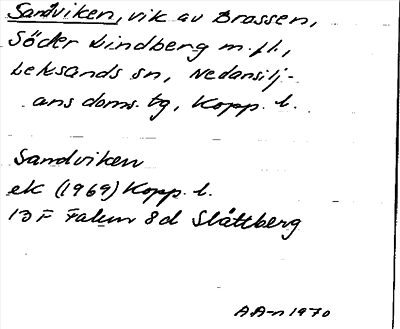 Sandviken, vik av Brossen,
Söder Lindberg m.fl.,
Leksands sn, Nedansilj-
ans doms. tg, Kopp. l.
Sandviken
ek (1969) Kopp. l.
13 F Falun 8d Slättberg
AA-n 1970